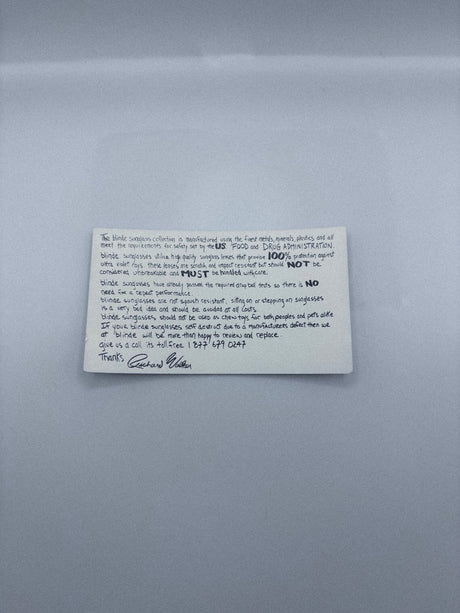 The blinde sunglass collection is manufactured using the finest metals, minerals, plastics, and all
meet the requirements for safety set by the US FOOD and DRUG ADMINISTRATION.
blinde sunglasses utilize high quality sunglass lenses that provide 100% protection against
ultra violet rays. these lenses are scratch and impact resistant but should NOT be
considered unbreakable and MUST be handled with care.
blinde sunglasses have already passed the required drop ball tests so there is NO
need for a repeat performance.
blinde sunglasses are not squash resistant, sitting on or stepping on sunglasses
is a very bad idea and should be avoided at all costs.
blinde sunglasses should not be used as chew toys for both peoples and pets alike
If your blinde sunglasses self destruct due to a manufacturers defect then we
at blinde will be more than happy to review and replace.
give us a call its toll free 1 877 679 0247
Thanks,